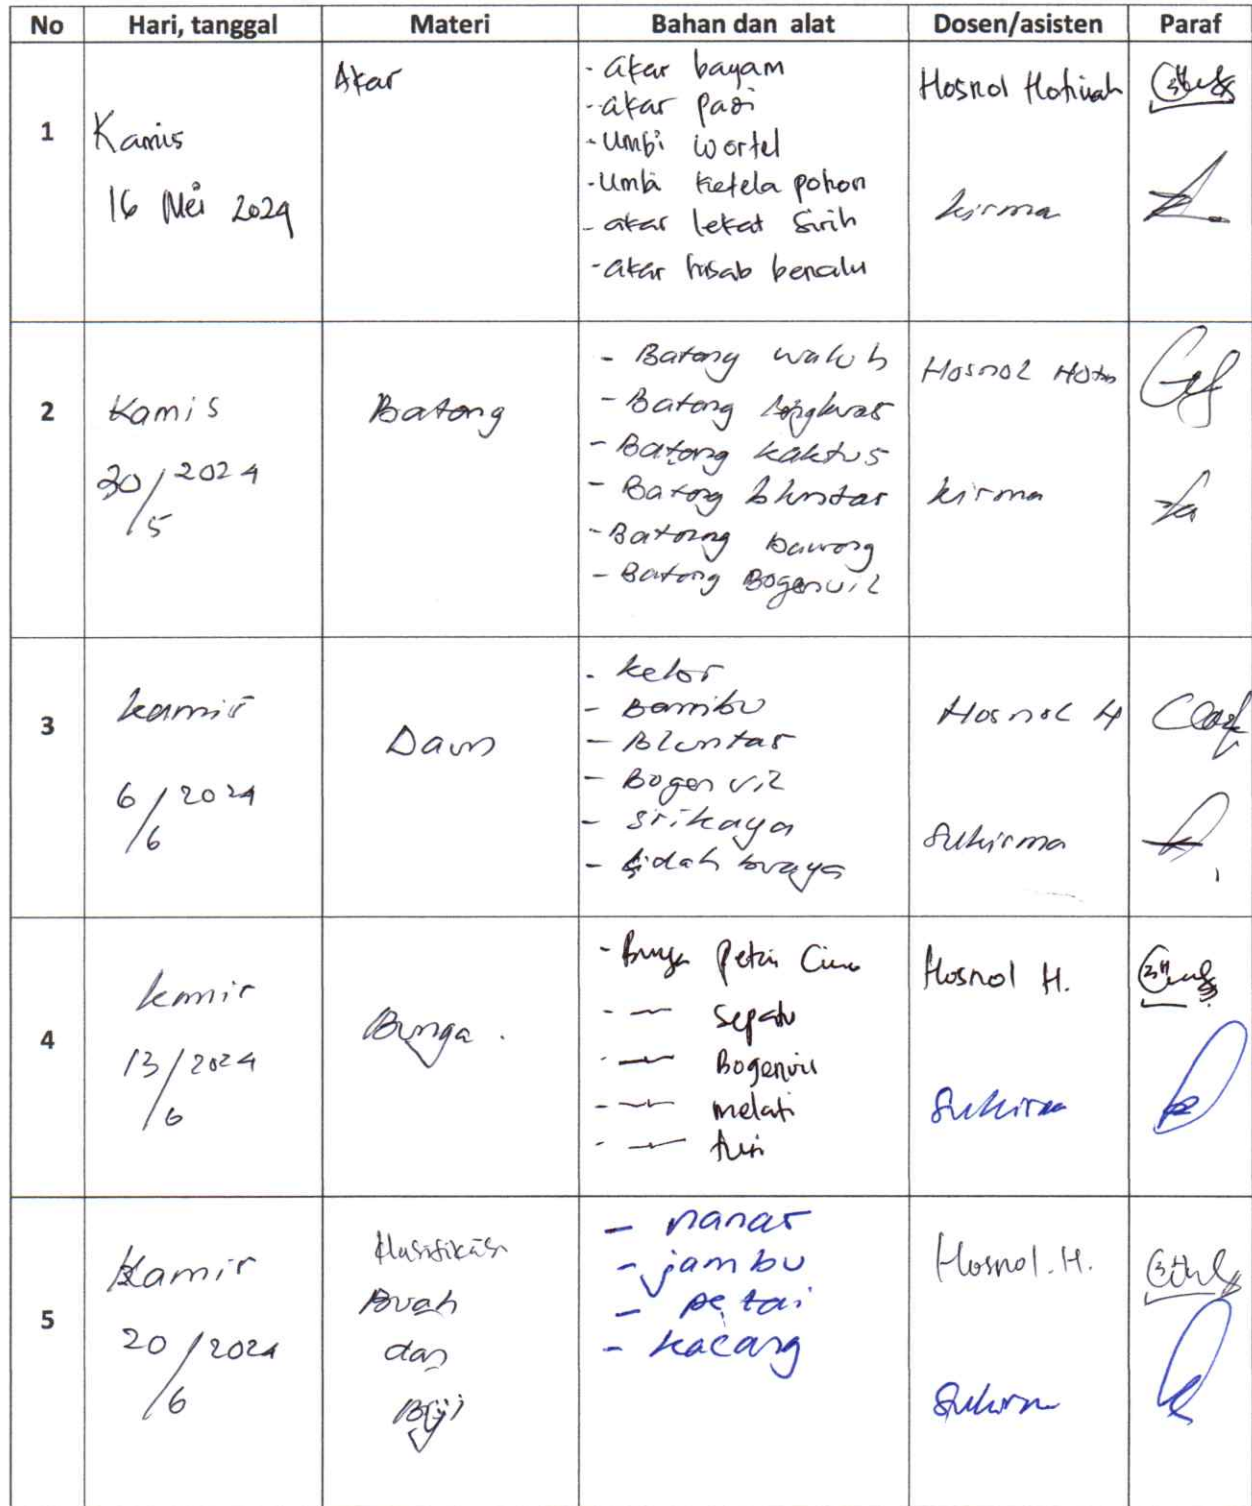 No Hari, tanggal Materi Bahan dan alat Dosen/asisten Paraf
1
Kamis
16 Mei 2024
Akar
- akar bayam
- akar padi
- Umbi wortel
- Umbi ketela pohon
- akar lekat Sirih
- akar hisab benalu
Hosnol Hotimah
kirma
2
Kamis
30/5 2024
Batang
- Batang waluh
- Batang lengkuas
- Batang kaktus
- Batang bluntas
- Batang bawang
- Batang Bogenvil
Hosnol Hotim
kirma
3
kamis
6/6 2024
Daun
- kelor
- Bambu
- Bluntas
- Bogenvil
- srikaya
- Lidah buaya
Hosnol H
Sukirma
4
kamis
13/6 2024
Bunga.
- Bunga Petai Cina
- — Sepatu
- — Bogenvil
- — melati
- — turi
Hosnol H.
Sukirma
5
Kamis
20/6 2024
Klasifikasi
Buah
dan
Biji
- nanas
- jambu
- petai
- kacang
Hosnol.H.
Sukirma